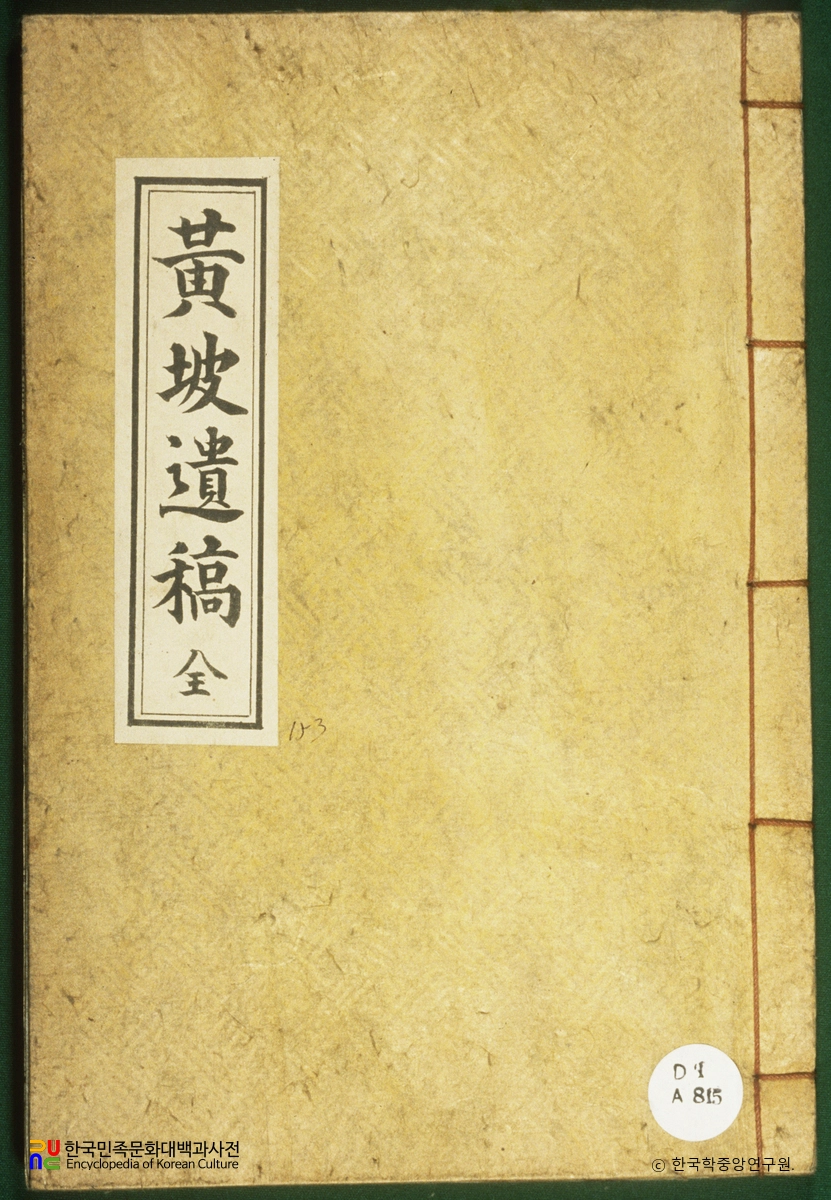 黃坡遺稿 全
D4
A 815
한국민족문화대백과사전
Encyclopedia of Korean Culture
© 한국학중앙연구원